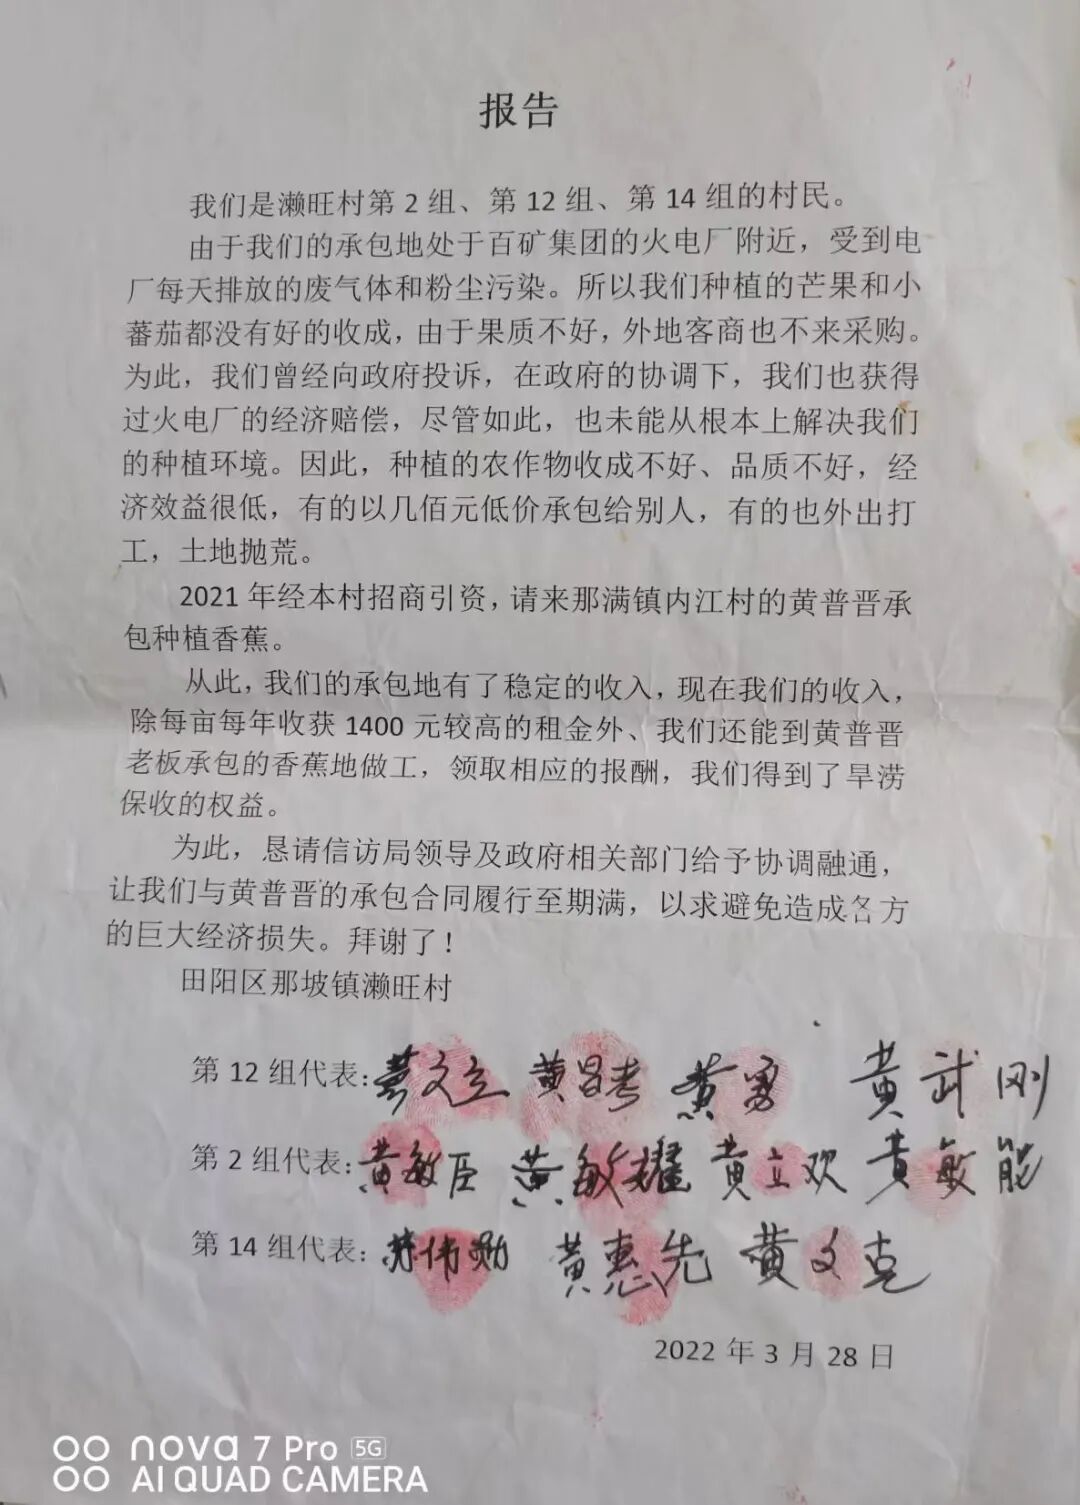 报告
我们是濑旺村第 2 组、第 12 组、第 14 组的村民。
由于我们的承包地处于百矿集团的火电厂附近，受到电
厂每天排放的废气体和粉尘污染。所以我们种植的芒果和小
蕃茄都没有好的收成，由于果质不好，外地客商也不来采购。
为此，我们曾经向政府投诉，在政府的协调下，我们也获得
过火电厂的经济赔偿，尽管如此，也未能从根本上解决我们
的种植环境。因此，种植的农作物收成不好、品质不好，经
济效益很低，有的以几佰元低价承包给别人，有的也外出打
工，土地抛荒。
2021 年经本村招商引资，请来那满镇内江村的黄普晋承
包种植香蕉。
从此，我们的承包地有了稳定的收入，现在我们的收入，
除每亩每年收获 1400 元较高的租金外、我们还能到黄普晋
老板承包的香蕉地做工，领取相应的报酬，我们得到了旱涝
保收的权益。
为此，恳请信访局领导及政府相关部门给予协调融通，
让我们与黄普晋的承包合同履行至期满，以求避免造成各方
的巨大经济损失。拜谢了！
田阳区那坡镇濑旺村
第 12 组代表：黄文立 黄昌考 黄勇 黄武刚
第 2 组代表：黄敏臣 黄敏耀 黄立欢 黄敏能
第 14 组代表：伟勋 黄惠先 黄文克
2022 年 3 月 28 日
nova 7 Pro 5G
AI QUAD CAMERA